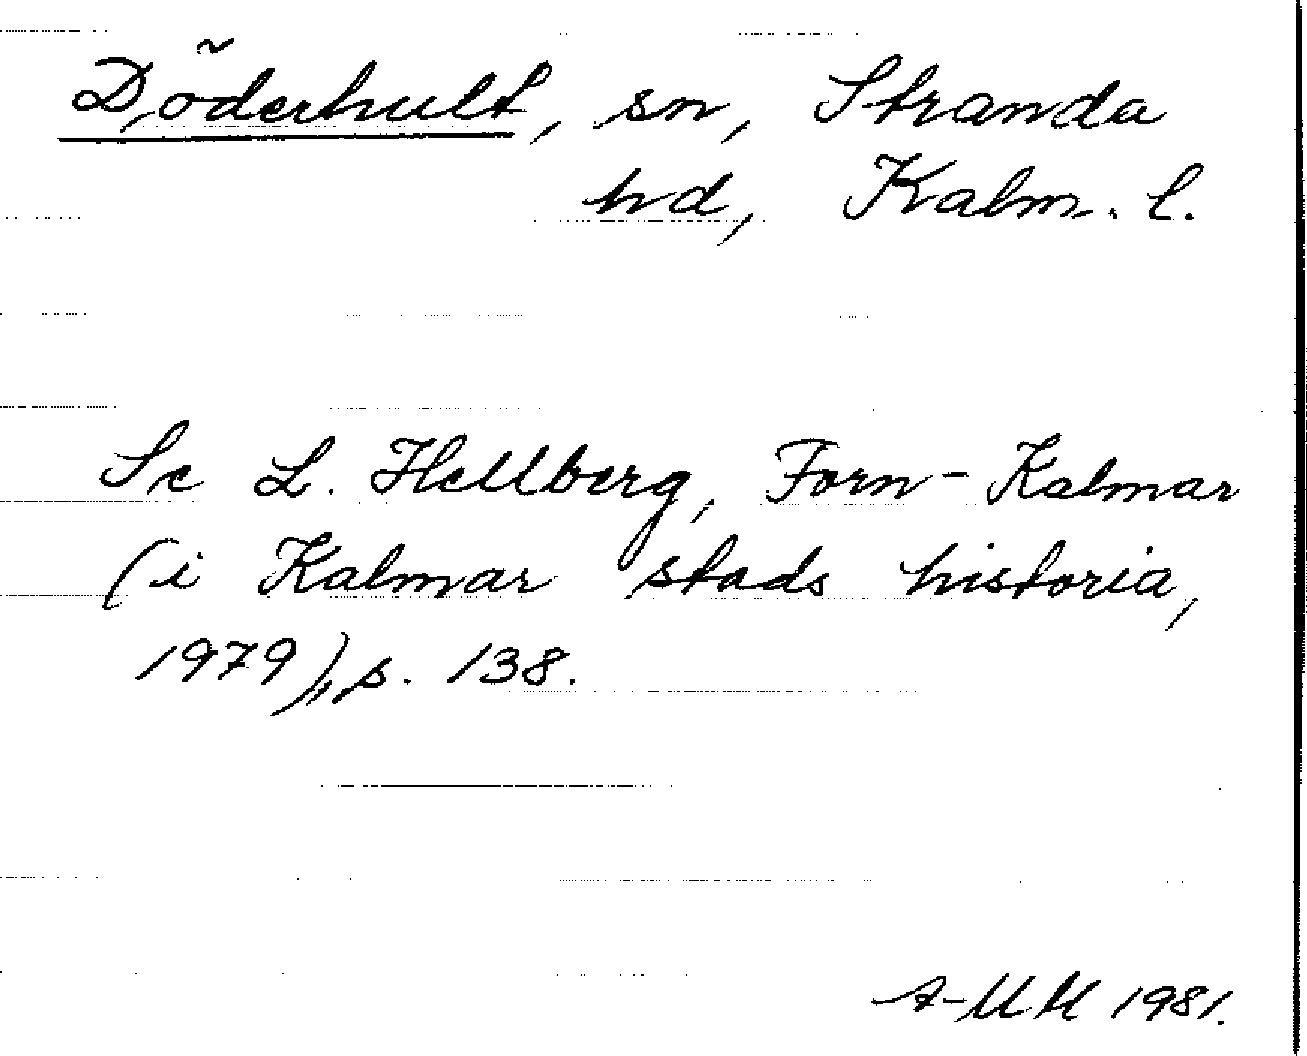 Döderhult, sn, Stranda
hd, Kalm. l.
Se L. Hellberg, Forn-Kalmar
(i Kalmar stads historia,
1979), p. 138.
A-MH 1981.